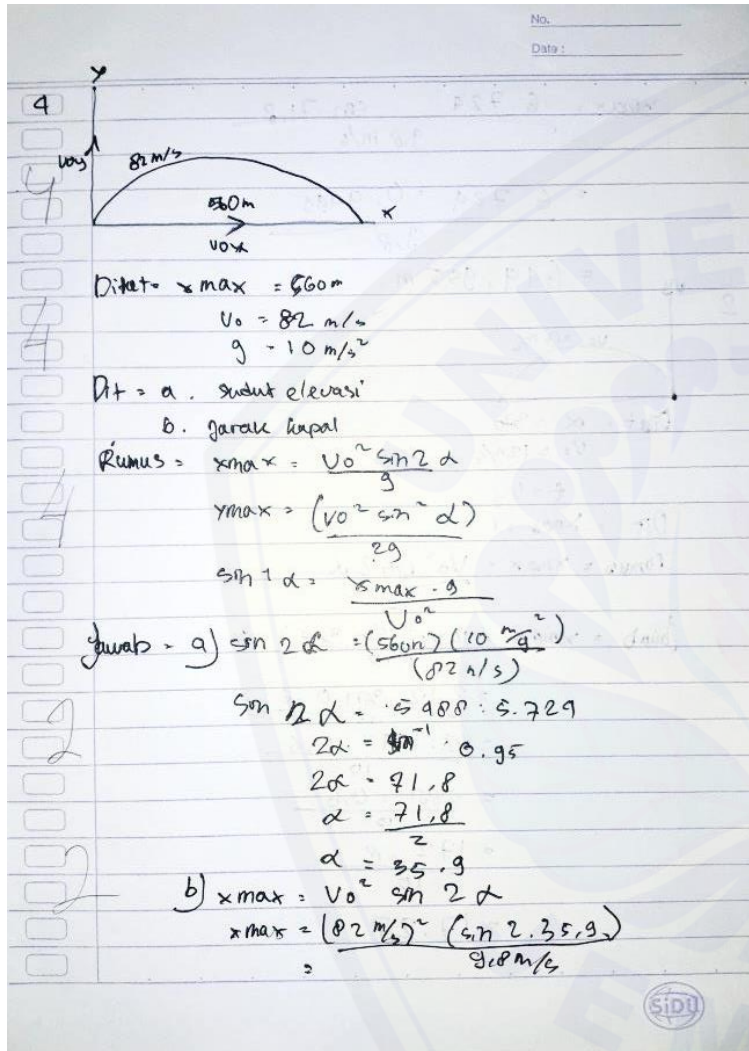 No.
Date :
4
y
voy
82 m/s
560 m
x
vox
Diket = x max = 560 m
Vo = 82 m/s
g = 10 m/s²
Dit = a. sudut elevasi
b. Jarak kapal
Rumus = xmax = Vo² sin 2 α / g
ymax = (vo² sin² α) / 2g
sin 2 α = xmax . g / Vo²
Jawab = a) sin 2 α = (560m) (10 m/g²) / (82 m/s)
Sin 2 α = 5488 : 5.729
2α = sin⁻¹ 0.95
2α = 71,8
α = 71,8 / 2
α = 35.9
b) xmax = Vo² sin 2 α
xmax = (82 m/s)² (sin 2. 35,9) / 9.8 m/s
=
SiDU